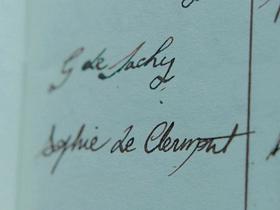 G de Sachy
Sophie de Clermont